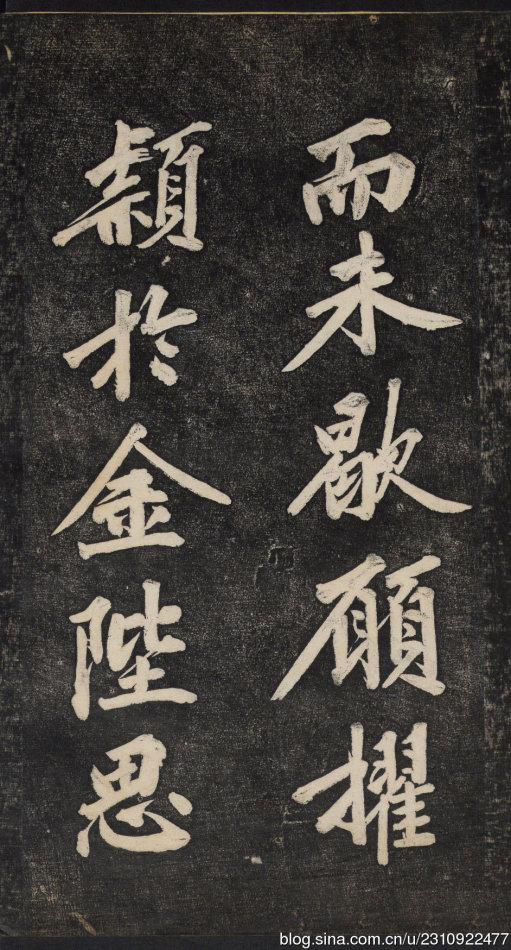 而未歇願擢
穎於金陛思
blog.sina.com.cn/u/2310922477